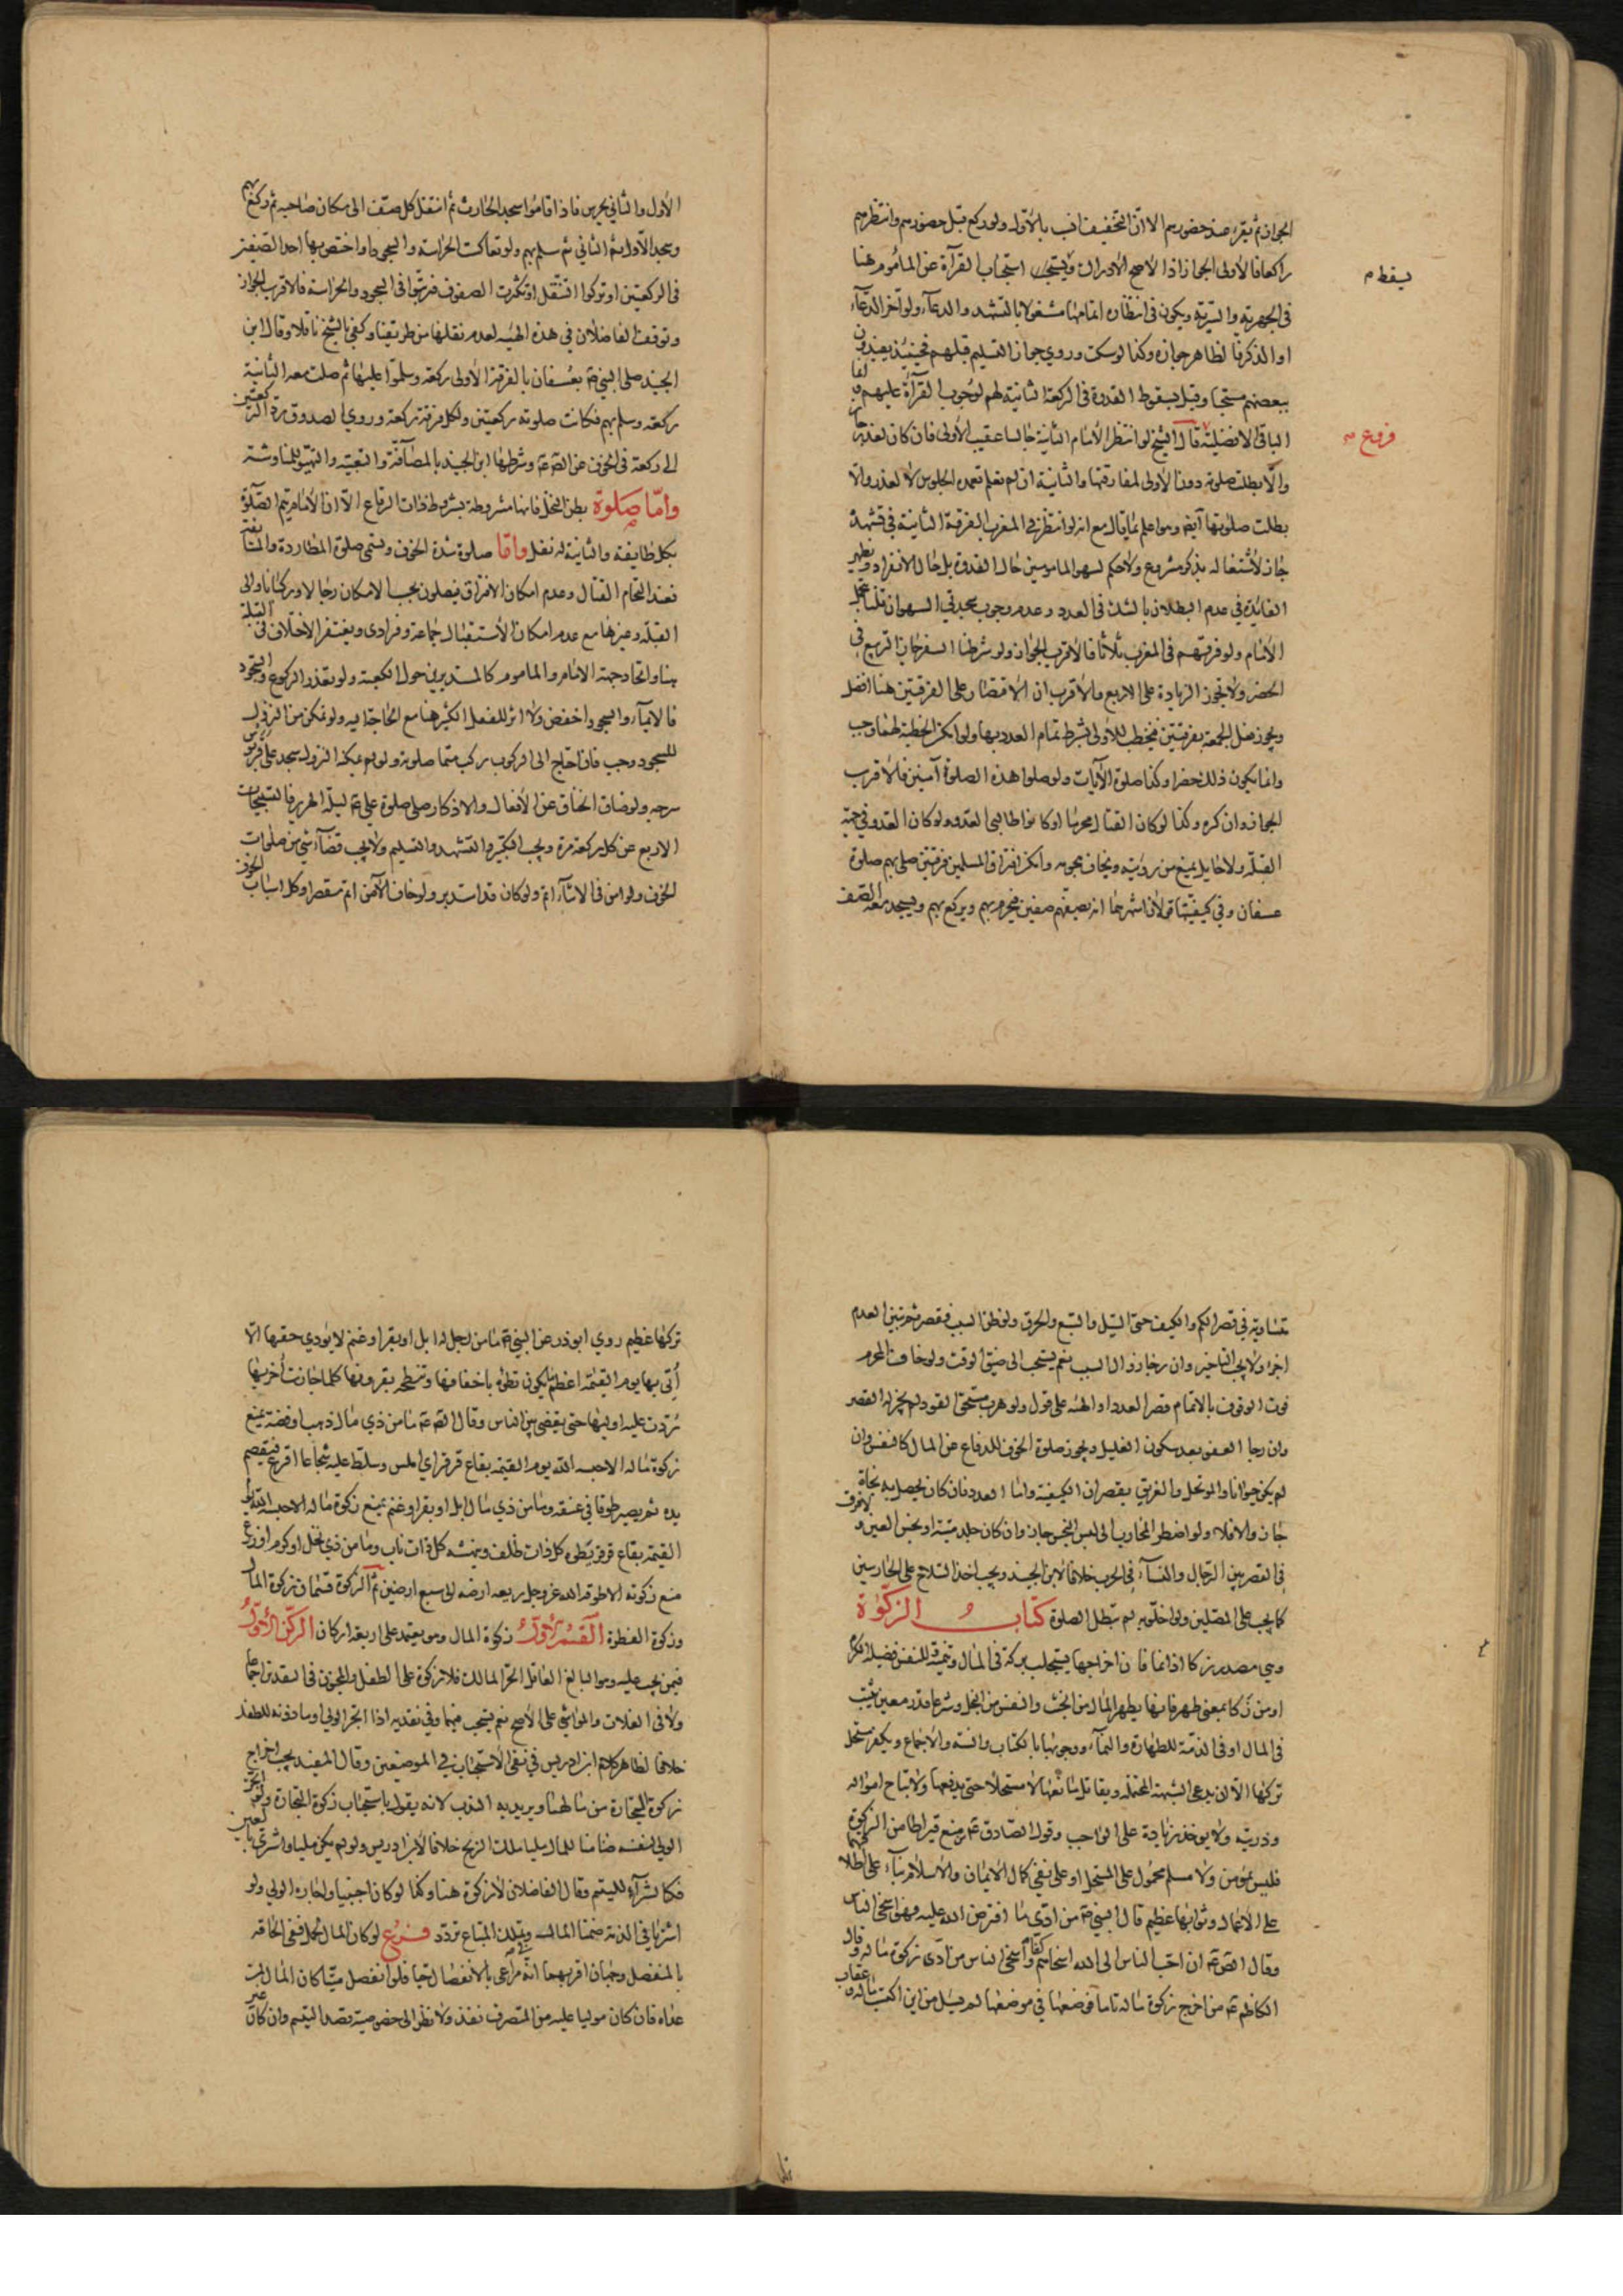 الجواز ثم يقرء عند حضورهم الا ان التخفيف انسب بالاول ولو ركع قبل حضورهم وانتظرهم
راكعا فالاولى الجواز اذا الاصح الادراك ويستحب استحباب القرآة عن المأموم هنا
يسقط م
في الجهرية والسرية ويكون في انتظاره اتمامها مشغولا بالتشهد والدعآء ولو آخر الدعآء
او الذكر فالظاهر جوازه وكذا لو سكت وروي جواز التسليم قبلهم فحينئذ يعيدون
ببعضهم مستحبا وقيل بسقوط القدوة في الركعة الثانية لهم لوجوب القرآة عليهم
الباقي لافضليته قال الشيخ لو انتظر الامام الثانية جالسا عقيب الاولى فان كان لعذر جاز
فروع
والا بطلت صلوته دون الاولى لمفارقتها والثانية ان لم تعلم تعمده الجلوس لا لعذر والا
بطلت صلوتها ايضا وهو اعلم بما قال مع انه لو انتظر في المغرب الفرقة الثانية في تشهده
جاز لاشتغاله بذكر مشروع ولا حكم لسهو المامومين حال القدوة بل حال الانفراد ويظهر
الفائدة في عدم البطلان بالشك في العدد وعدم وجوب سجدتي السهو ان قلنا
الامام ولو فرقهم في المغرب ثلاثا فالاقرب الجواز ولو شرطنا السفر جاز التربيع في
الحضر ولا تجوز الزيادة على الاربع والاقرب ان الاقتصار على الفرقتين هنا افضل
ويجوز فعل الجمعة بفرقتين فيخطب للاولى بشرط تمام العدد بها ولو امكن الخطبة لهما وجب
وانما يكون ذلك حضرا وكذا صلوة الآيات ولو صلوا هذه الصلوة آمنين فالاقرب
الجواز وان كره وكذا لو كان القتال محرما او كانوا طالبي العدو ولو كان العدو في جهة
القبلة ولا حايل يمنع من رؤيته ويخاف هجومه وامكن افتراق المسلمين فرقتين صلى بهم صلوة
عسفان وفي كيفيتها قولان اشهرهما انه يصفهم صفين فيحرم بهم ويركع بهم ويسجد معه الصف
الاول والثاني يحرس فاذا قاموا سجد الحارث ثم انتقل كل صف الى مكان صاحبه ثم ركع بهم
وسجد الاول ثم الثاني ثم سلم بهم ولو تعاكست الحراسة والسجود او اختص بها احد الصفين
في الركعتين او تركوا التنقل او تكثرت الصفوف فترتبوا في السجود والحراسة فالاقرب الجواز
وتوقف الفاضلان في هذه الهيئة لعدم نقلها من طريقنا وكفى بالشيخ ناقلا وقال ابن
الجنيد صلى النبي ص بعسفان بالفرقة الاولى ركعة وسلموا عليها ثم صلت معه الثانية
ركعة وسلم بهم فكانت صلوته ركعتين ولكل فرقة ركعة وروي الصدوق رد الركعتين
الى ركعة في الخوف عن الص ع وشرطها ابن الجنيد بالمصافة والتعبية والتهيؤ للمناوشة
واما صلوة بطن النخل فانها مشروطة بشروط ذات الرقاع الا ان الامام يتم الصلوة
بكل طايفة والثانية له نفل واما صلوة شدة الخوف وتسمى صلوة المطاردة والمسايفة
فعند التحام القتال وعدم امكان الافتراق فيصلون بحسب الامكان رجالا او ركبانا والى
القبلة وغيرها مع عدم امكان الاستقبال جماعة وفرادى ويغتفر الاختلاف في القبلة
هنا واتحاد جهة الامام والماموم كالمستديرين حول الكعبة ولو تعذر الركوع والسجود
فالايمآء والسجود اخفض ولا اثر للفعل الكثير هنا مع الحاجة اليه ولو تمكن من النزول
للسجود وجب فان احتاج الى الركوب ركب متمما صلوته ولو لم يمكنه النزول سجد على قربوس
سرجه ولو ضاق الخناق عن الافعال والاذكار صلى صلوة علي ع ليلة الهرير فالتسبيحات
الاربع عن كل ركعة مرة ويجب التكبير والتشهد والتسليم ولا يجب قضآء شئ من صلوات
الخوف ولو امن في الاثنآء اتم ولو كان قد استدبر ولو خاف الآمن اتم مقصرا وكل اسباب الخوف
متساوية في قصر الكم والكيف حتى السيل والسبع والحرق ولو ظن السبب فقصر ثم تبين العدم
اجزأ ولا يجب التاخير وان رجا زوال السبب نعم يستحب الى ضيق الوقت ولو خاف المحرم
فوت الوقوف بالاتمام قصر العدد او الهيئة على قول ولو هرب مستحق القود لم يجز له القصر
وان رجا العفو بعد سكون الغليل ويجوز صلوة الخوف للدفاع عن المال كالنفس وان
لم يكن حيوانا والموتحل والغريق يقصران الكيفية واما العدد فان كان يحصل به نجاة
جاز والا فلا ولو اضطر المحارب الى لبس النجس جاز وان كان جلد ميتة او نجس العين ولا فرق
في القصر بين الرجال والنسآء في الحرب خلافا لابن الجنيد ويجب اخذ السلاح على الحارسين
كما يجب على المصلين ولو اخلوا به لم تبطل الصلوة كتاب الزكوة
وهي مصدر زكا اذا نما فان اخراجها يستجلب بركة في المال وتنمية للنفس فضيلة الكرم
او من زكا بمعنى طهر فانها يطهر المال من الخبث والنفس من البخل وشرعا قدر معين يثبت
في المال او في الذمة للطهارة والنمآء ووجوبها بالكتاب والسنة والاجماع ويكفر مستحل
تركها الا ان يدعي الشبهة المحتملة ويقاتل مانعها لا مستحلا حتى يدفعها ولا تباح امواله
وذريته ولا يوخذ زيادة على الواجب وقول الصادق ع من منع قيراطا من الزكوة
فليس بمؤمن ولا مسلم محمول على المستحل او على نفي كمال الايمان والاسلام بنآء على اطلاقهما
على الاعمال وثوابها عظيم قال النبي ص من ادى ما افترض الله عليه فهو اسخى الناس
وقال الص ع ان احب الناس الى الله اسخاهم كفا واسخى الناس من ادى زكوة ماله وقال
الكاظم ع من اخرج زكوة ماله تاما فوضعها في موضعها لم يسل من اين اكتسب ماله وعقاب
تركها عظيم روي ابوذر عن النبي ص ما من رجل له ابل او بقر او غنم لا يؤدي حقها الا
أتي بها يوم القيمة اعظم ما يكون تطؤه باخفافها وتنطحه بقرونها كلما جازت أخريها
ردت عليه اوليها حتى يقضى بين الناس وقال الص ع ما من ذي مال ذهب او فضة يمنع
زكوة ماله الا حبسه الله يوم القيمة بقاع قرقر اي املس وسلط عليه شجاعا اقرع فيقصم
يده ثم يصير طوقا في عنقه وما من ذي مال ابل او بقر او غنم يمنع زكوة ماله الا حبسه الله يوم
القيمة بقاع قرقر يطؤه كل ذات ظلف وينهشه كل ذات ناب وما من ذي نخل او كرم او زرع
منع زكوته الا طوقه الله عز وجل ريعه ارضه الى سبع ارضين ثم الزكوة قسمان زكوة المال
وزكوة الفطرة القسم الاول زكوة المال وهو يعتمد على اربعة اركان الركن الاول
فيمن يجب عليه وهو البالغ العاقل الحر المالك فلا زكوة على الطفل والمجنون في النقدين اجماعا
ولا في الغلات والمواشي على الاصح نعم يستحب فيها وفي نقديه اذا اتجر الولي وماذونه للطفل
خلافا لظاهر كلام ابن ادريس في نفي الاستحباب في الموضعين وقال المفيد يجب اخراج
زكوة التجارة من مالهما ويريد به الندب لانه يقول باستحباب زكوة التجارة ولو اتجر
الولي لنفسه ضامنا للمال مليا ملك الربح خلافا لابن ادريس ولو لم يكن مليا واشترى بالعين
فكالشرآء لليتيم وقال الفاضلان لا زكوة هنا وكذا لو كان اجنبيا واجازه الولي ولو
اشتريا في الذمة ضمنا المال وملك المبتاع تردد فروع لو كان المال للحمل ففي الحاقه
بالمنفصل وجهان اقربهما انه مراعى بالانفصال حيا فلو انفصل ميتا كان المال لمن
عداه فان كان موليا عليه من المتصرف نفذ ولا نظر الى خصوصية قصد اليتيم وان كان غير